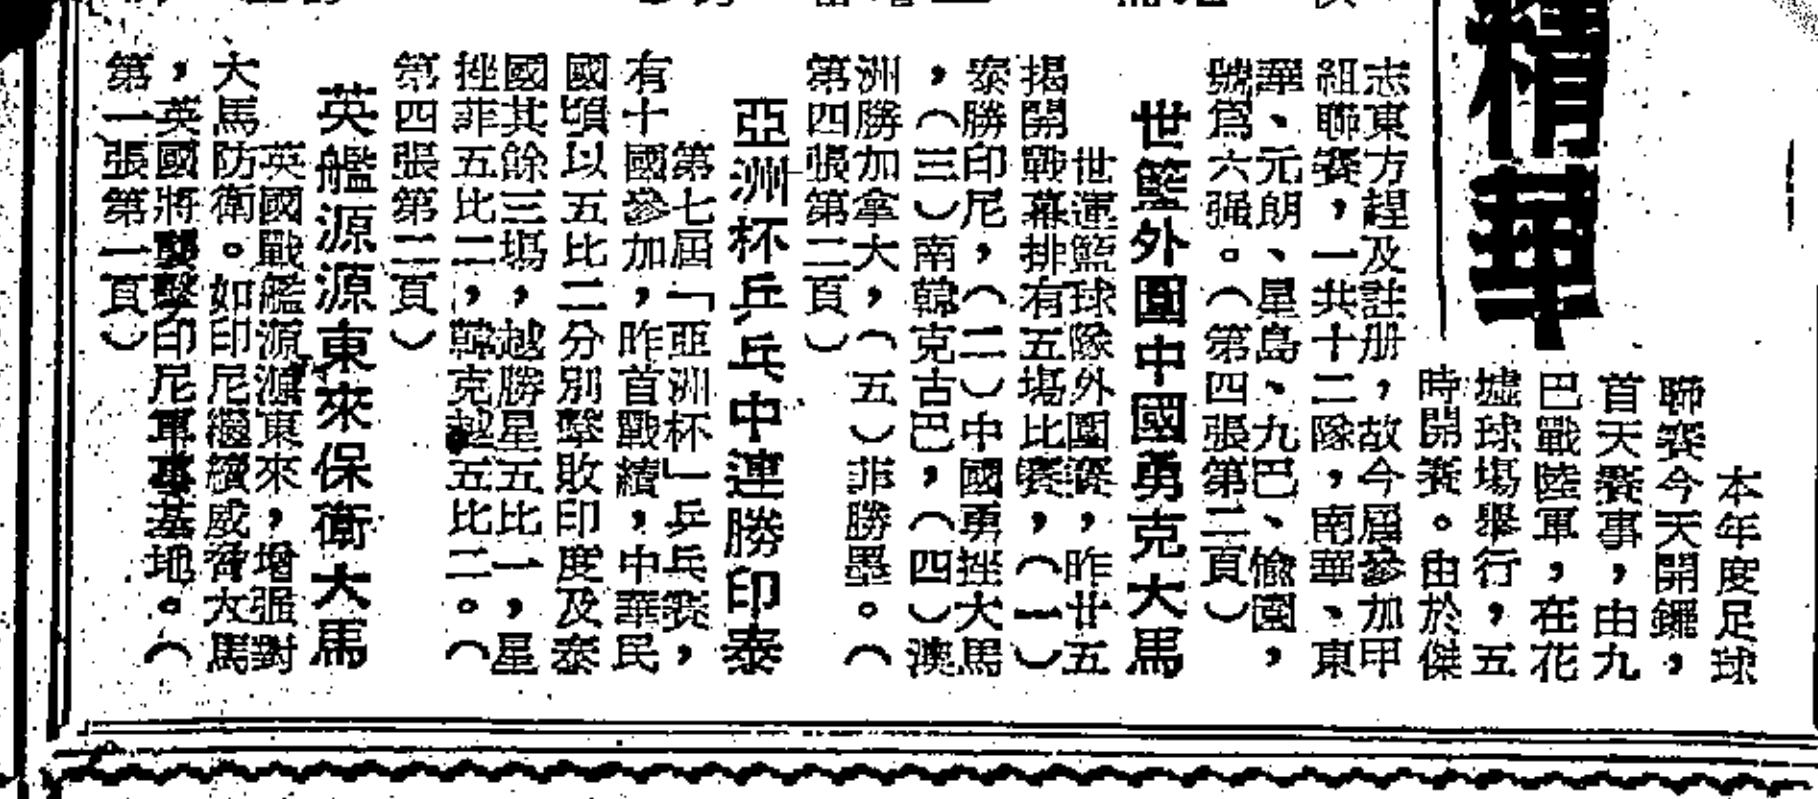 精華
本年度足球
聯賽今天開鑼，
首天賽事，由九
巴戰陸軍，在花
墟球場舉行，五
時開賽。由於傑
志東方趕及註册，故今屆參加甲
組聯賽，一共十二隊，南華、東
華、元朗、星島、九巴、愉園，
號爲六强。（第四張第二頁）
世籃外圍中國勇克大馬
世運籃球隊外圍賽，昨廿五
揭開戰幕排有五塲比賽，（一）
泰勝印尼，（二）中國勇挫大馬
，（三）南韓克古巴，（四）澳
洲勝加拿大，（五）菲勝墨。（
第四張第二頁）
亞洲杯乒乓中連勝印泰
第七屆「亞洲杯」乒乓賽，
有十國參加，昨首戰續，中華民
國頃以五比二分別擊敗印度及泰
國其餘三塲，越勝星五比一，星
挫菲五比二，韓克越五比二。（
第四張第二頁）
英艦源源東來保衛大馬
英國戰艦源源東來，增强對
大馬防衛。如印尼繼續威脅大馬
，英國將襲擊印尼軍事基地。（
第一張第一頁）